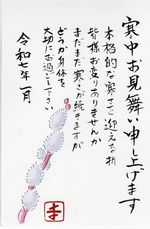 寒中お見舞い申し上げます
本格的な寒さを迎えた折
皆様お変りありませんか
まだまだ寒さが続きますが
どうか身体を
大切にお過ごし下さい
令和七年一月